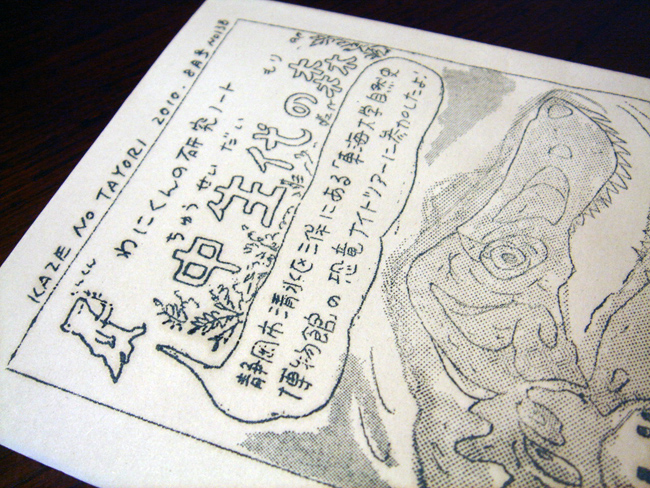 KAZE NO TAYORI 2010.8月号 No138
わにくんの研究ノート
ちゅう せい だい もり
中生代の森
静岡市清水区三保にある「東海大学自然史
博物館」の恐竜ナイトツアーに参加したよ!